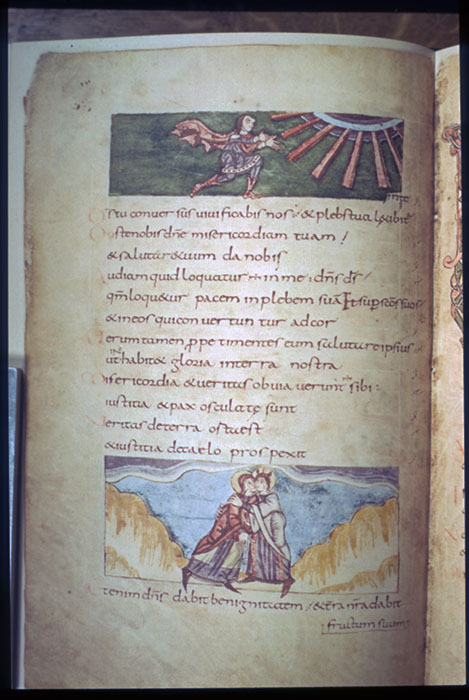 inte
Ds tu conversus vivificabis nos / & plebs tua l&abit
Ostenobis dne misericordiam tuam /
& salutare tuum da nobis
Audiam quid loquatur in me dns ds
qm loqu&ur pacem in plebem suā Et sup scos suos
& in eos qui convertuntur ad cor
Verumtamen ppe timentes eum salutare ipsius
ut inhabit& gloria in terra nostra
Misericordia & veritas obviaverunt sibi:
iustitia & pax osculatę sunt
Veritas de terra orta est
& iustitia de caelo prospexit
&enim dns dabit benignitatem / & terra nra dabit
fructum suum